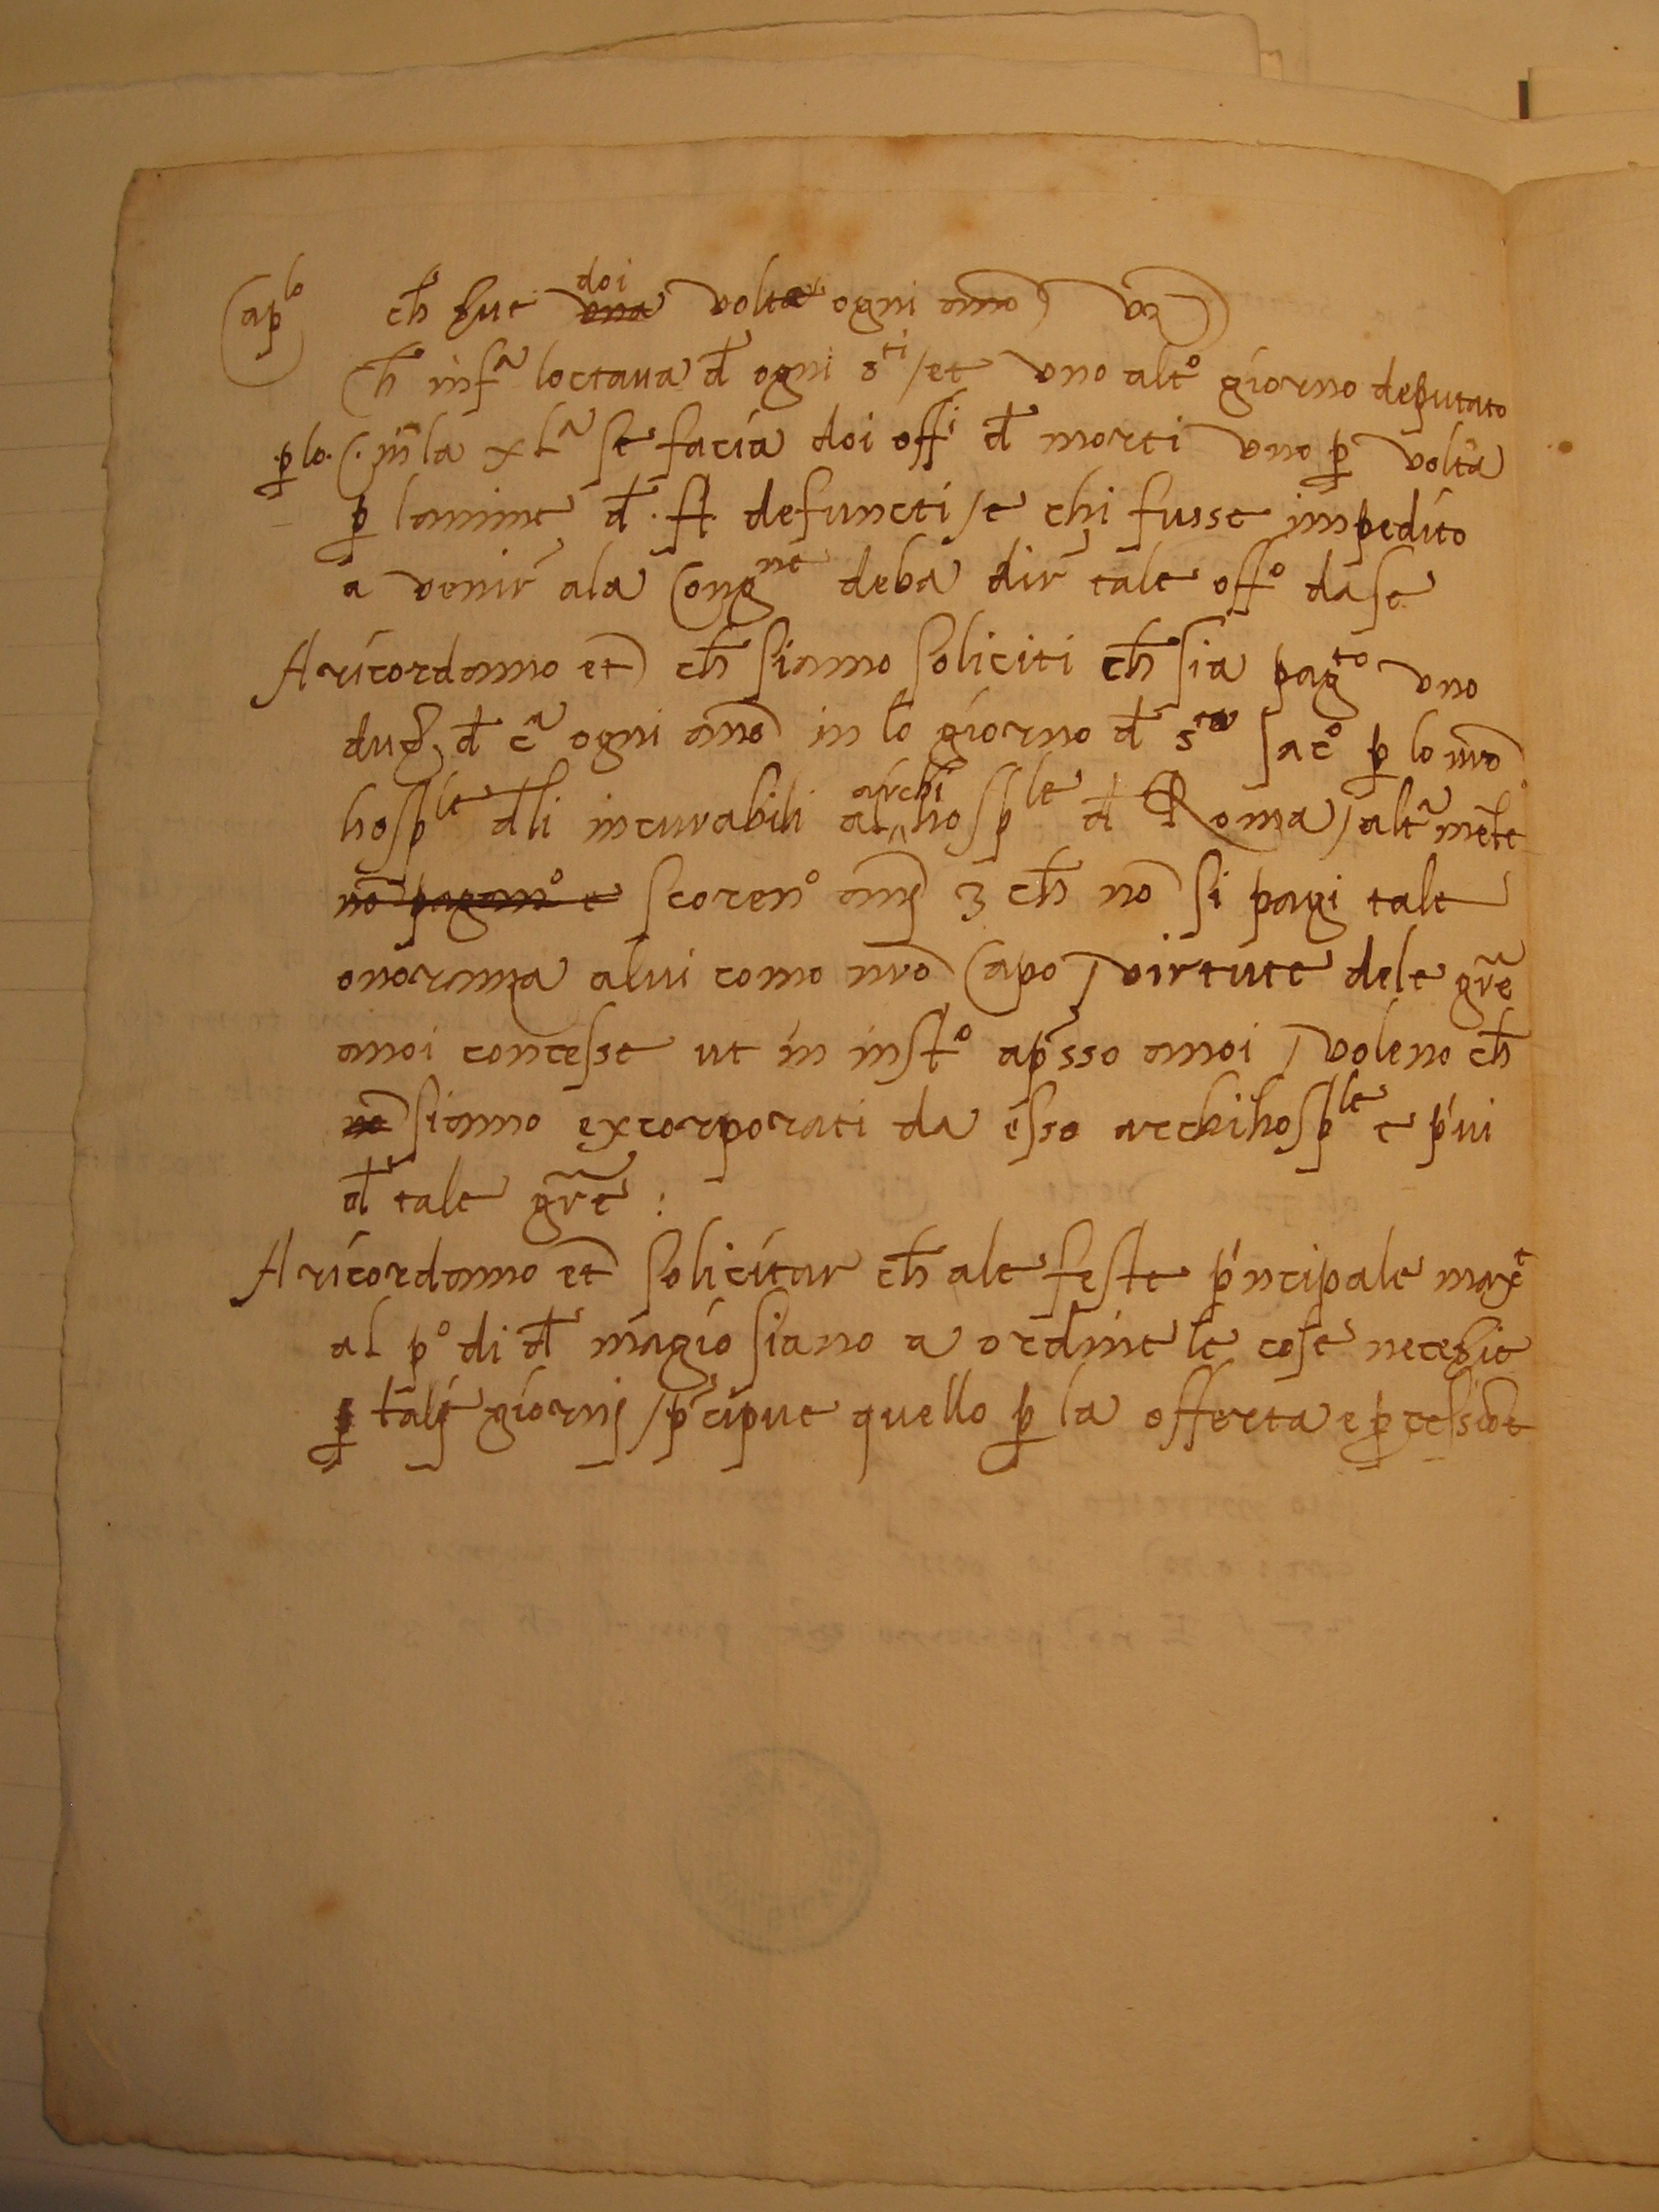 (ap^lo ch due doi una volta ogni anno
ch infra loctava d ogni s^ti /et uno alt° giorno deputato
p lo. ( in la xl^a se facia doi off^i d morti uno p volta
p lanime d. fr. defuncti /e chi fusse impedito
a venir ala Cong^ne deba dir tale off° da se
A ricordamo et ch siamo soliciti ch sia pag^to uno
duc d c^a ogni ano in lo giorno d s^to Jac° p lo nro
hosp^le d li incurabili al archi hosp^le d Roma /altr mete
no pagan° e scoren° anni 3 ch no si pagi tale
onoranza alui como nro capo / virtute dele gre
anoi concesse ut in inst° apsso anoi / voleno ch
no siamo excorporati da esso archihosp^le e pvi
d tale gre :
A ricordamo et solicitar ch ale feste pncipale max^e
al p° di d magio siano a ordine le cose necesie
p talj giornj /pcipue quello p la offerta e pcessioe